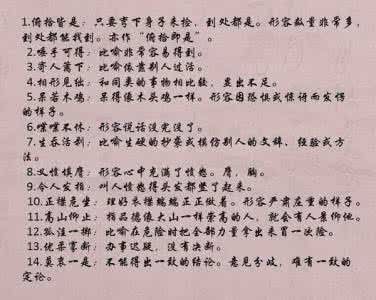 1.俯拾皆是：只要弯下身子来捡，到处都是。形容数量非常多，
到处都能找到。亦作“俯拾即是”。
2.唾手可得：比喻非常容易得到。
3.寄人篱下：比喻依靠别人过活。
4.相形见绌：和同类的事物相比较，显出不足。
5.呆若木鸡：呆得像木头鸡一样。形容因恐惧或惊讶而发愣
的样子。
6.喋喋不休：形容说话没完没了。
7.生吞活剥：比喻生硬的抄袭或模仿别人的文辞、经验或方
法。
8.义愤填膺：形容心中充满了愤怒。膺，胸。
9.令人发指：叫人愤怒得头发都竖了起来。
10.正襟危坐：理好衣襟端端正正做着。形容严肃庄重的样子。
11.高山仰止：指品德像大山一样崇高的人，就会有人景仰他。
12.孤注一掷：比喻在危险时把全部力量拿出来冒一次险。
13.优柔寡断：办事迟疑，没有决断。
14.莫衷一是：不能得出一致的结论。意见分歧，难有一致的
定论。